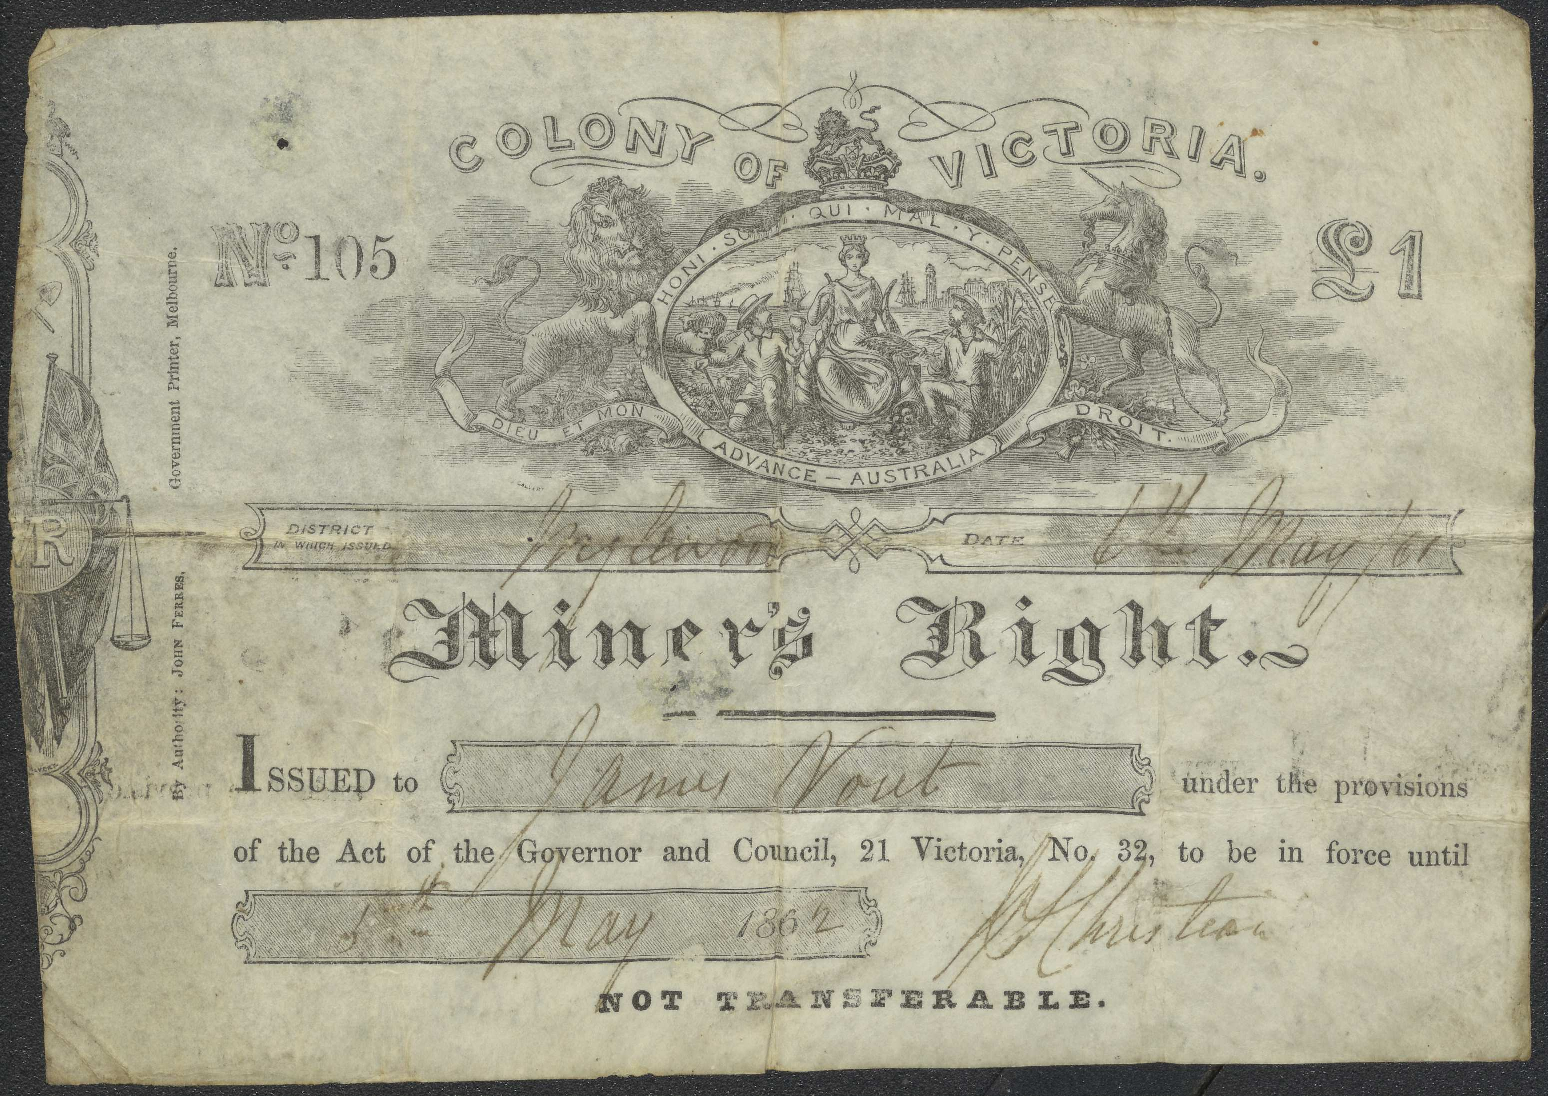 COLONY OF VICTORIA.
No 105
£1
HONI · SOIT · QUI · MAL · Y · PENSE
DIEU ET MON DROIT.
ADVANCE — AUSTRALIA
DISTRICT IN WHICH ISSUED Inglewood
DATE 6th May /61
Miner's Right.
ISSUED to James Vout under the provisions
of the Act of the Governor and Council, 21 Victoria, No. 32, to be in force until
5th May 1862
Christian
NOT TRANSFERABLE.
By Authority: JOHN FERRES, Government Printer, Melbourne.
R